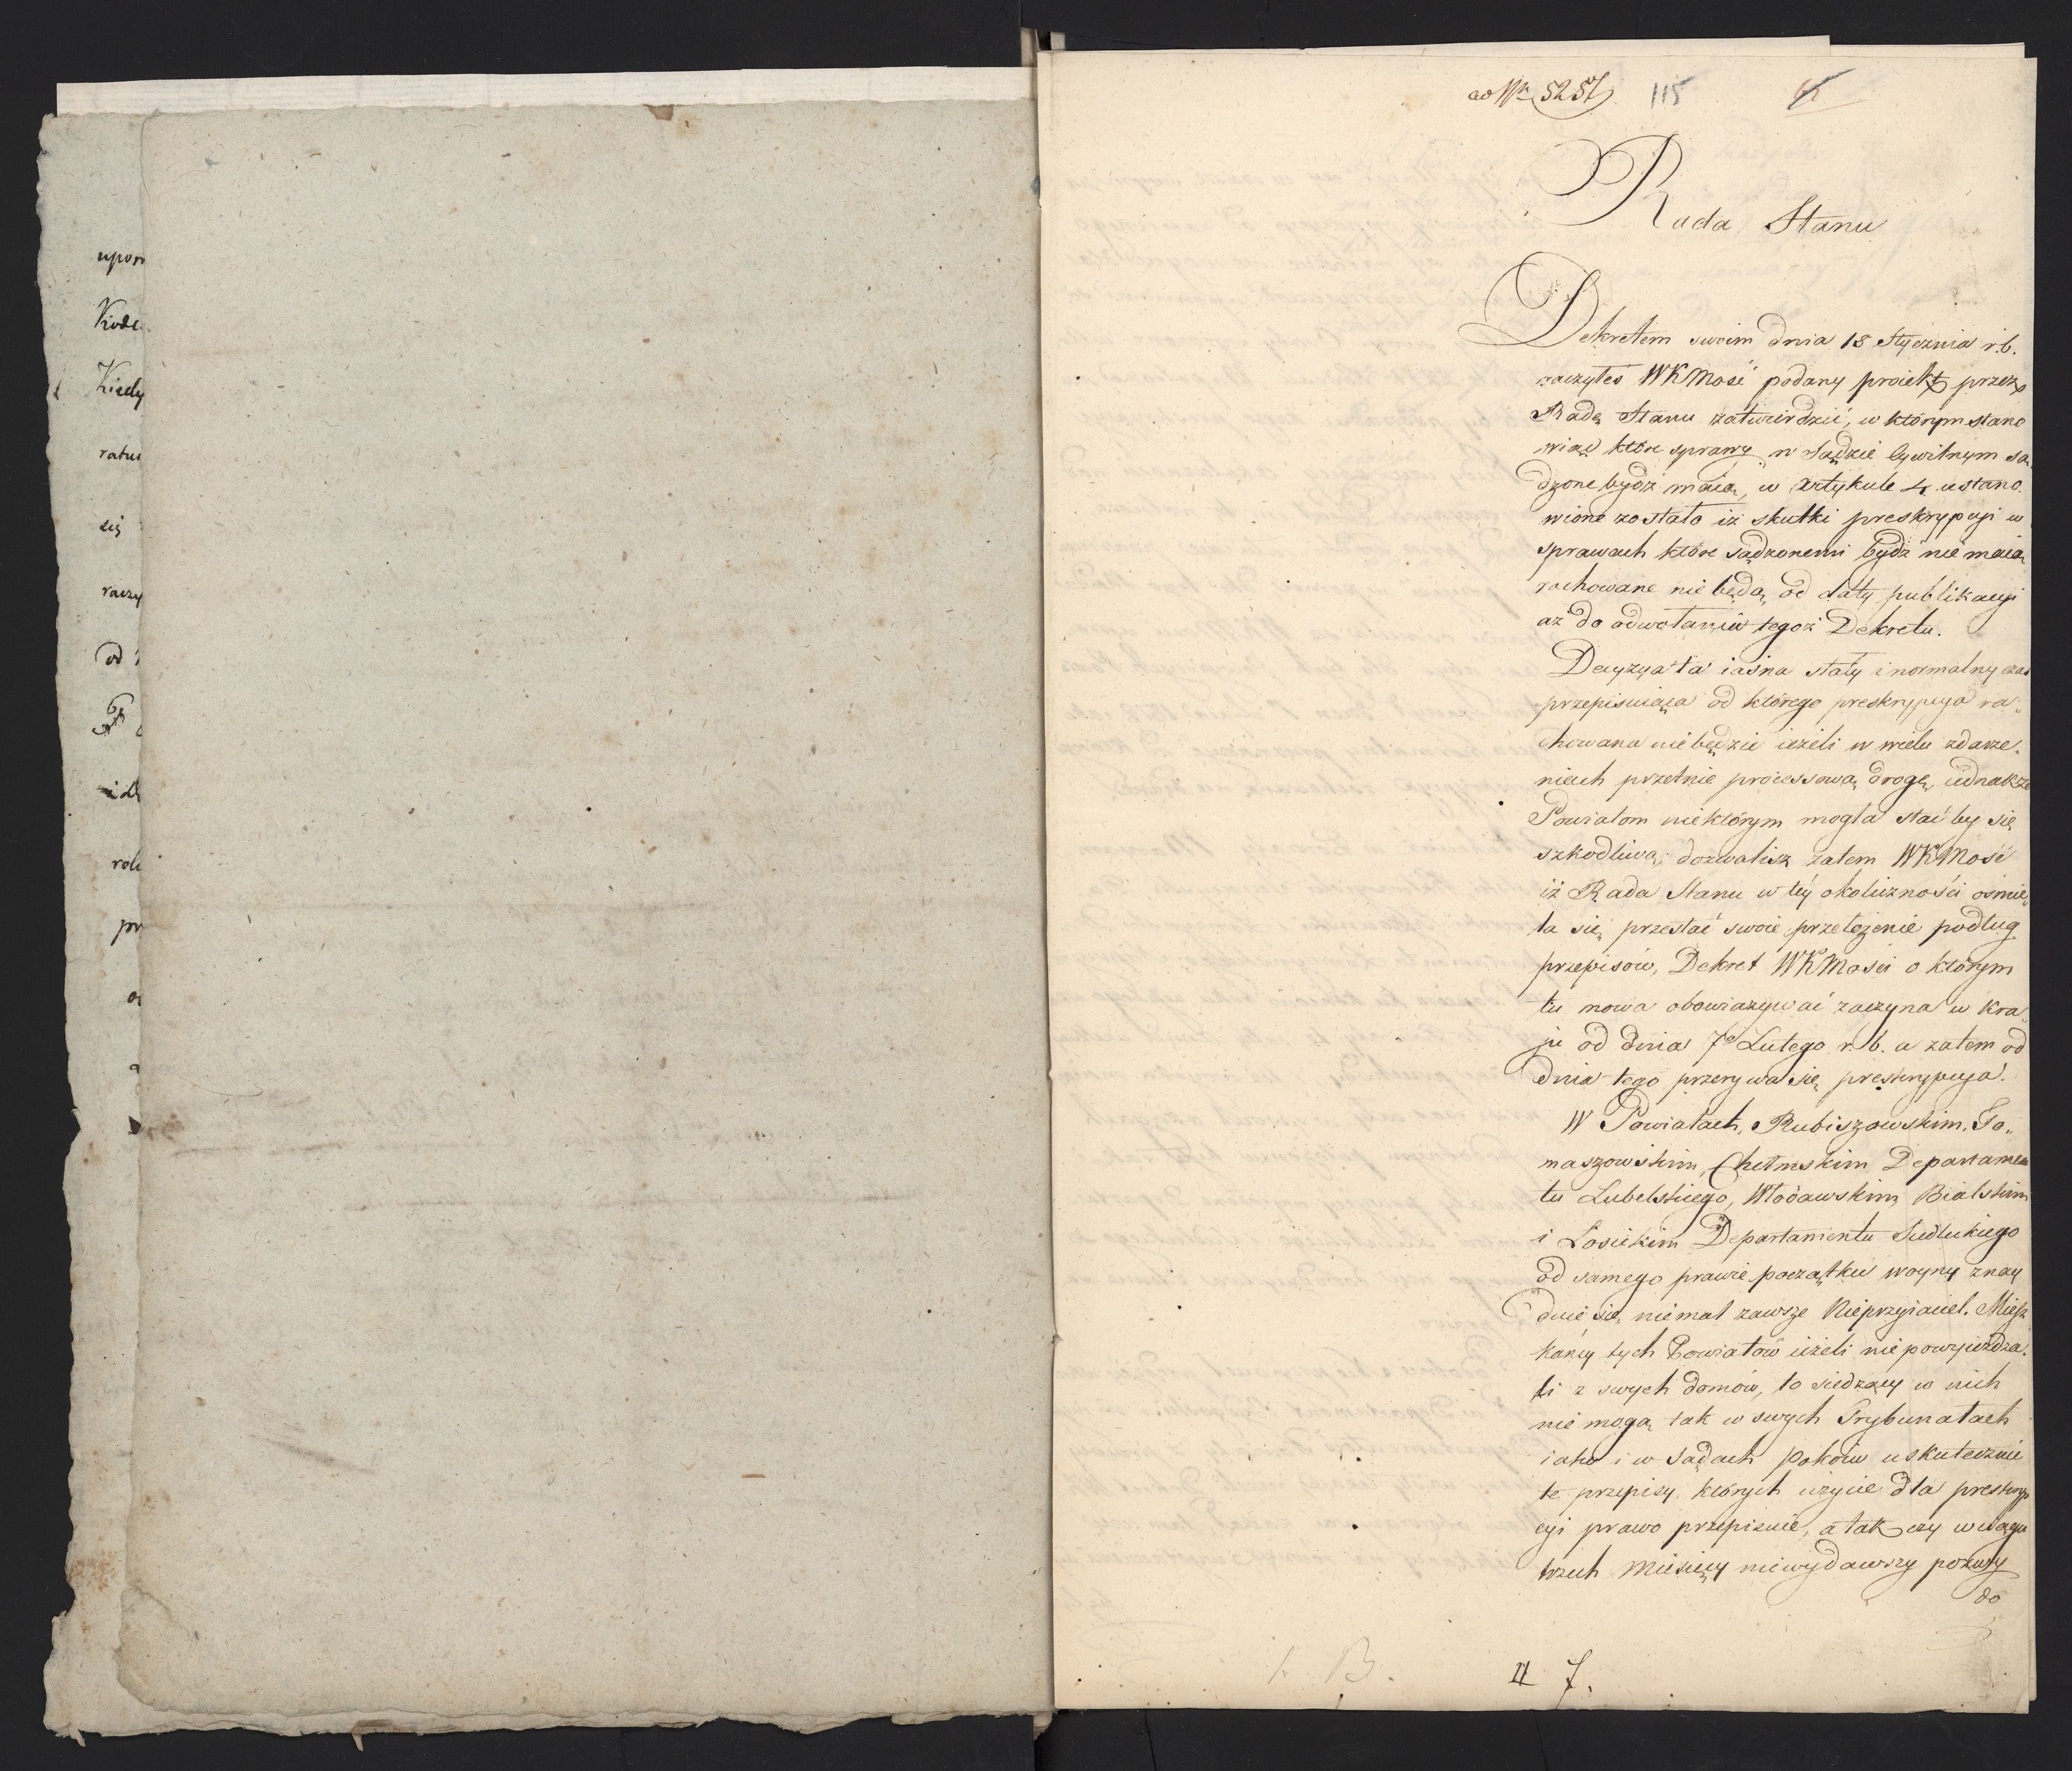 upon
Kode
Kiedy
ratu
się
raczy
od
rol
pr
ad Nr 5257 115
Rada Stanu
Dekretem swoim dnia 18 Stycznia r.b.
raczyłeś WKMość podany proiekt przez
Radę Stanu zatwierdzić, w którym stano
wiąc które sprawy w Sądzie Cywilnym są„
dzone bydź maią, w Artykule 4 ustano„
wione zostało iż skutki preskrypcyi w
sprawach które sądzonemi bydź nie maią
rachowane nie będą od daty publikacyi
aż do odwołania tegoż Dekretu.
Decyzya ta iasna stały i normalny czas
przepisuiąca od którego preskrypcya ra„
chowana nie będzie ieżeli w wielu zdarze„
niach przetnie processową drogę, iednakże
Powiatom niektórym mogła stać by się
szkodliwą; dozwolisz zatem WKMość
iż Rada Stanu w tey okoliczności ośmie„
la się przesłać swoie przełożenie podług
przepisów, Dekret WKMości o którym
tu mowa obowiązywać zaczyna w kra„
ju od dnia 7o Lutego r.b. a zatem od
dnia tego przerywa się preskrypcya.
W Powiatach, Rubiszowskim, To„
maszowskim, Chełmskim Departamen
tu Lubelskiego, Włodawskim, Bialskim
i Łosickim Departamentu Siedleckiego
od samego prawie początku woyny znay
duie się niemal zawsze Nieprzyiaciel. Miesz
kańcy tych Powiatów ieżeli nie powyieżdża„
li z swych domów, to siedzący w nich
nie mogą tak w swych Trybunałach
iako i w Sądach Pokoiu uskutecznić
te przepisy których użycie dla preskryp
cyi prawo przepisuie, a tak czy w ciągu
trzech Miesięcy niewydawszy pozwy
do
1. B. II 7.